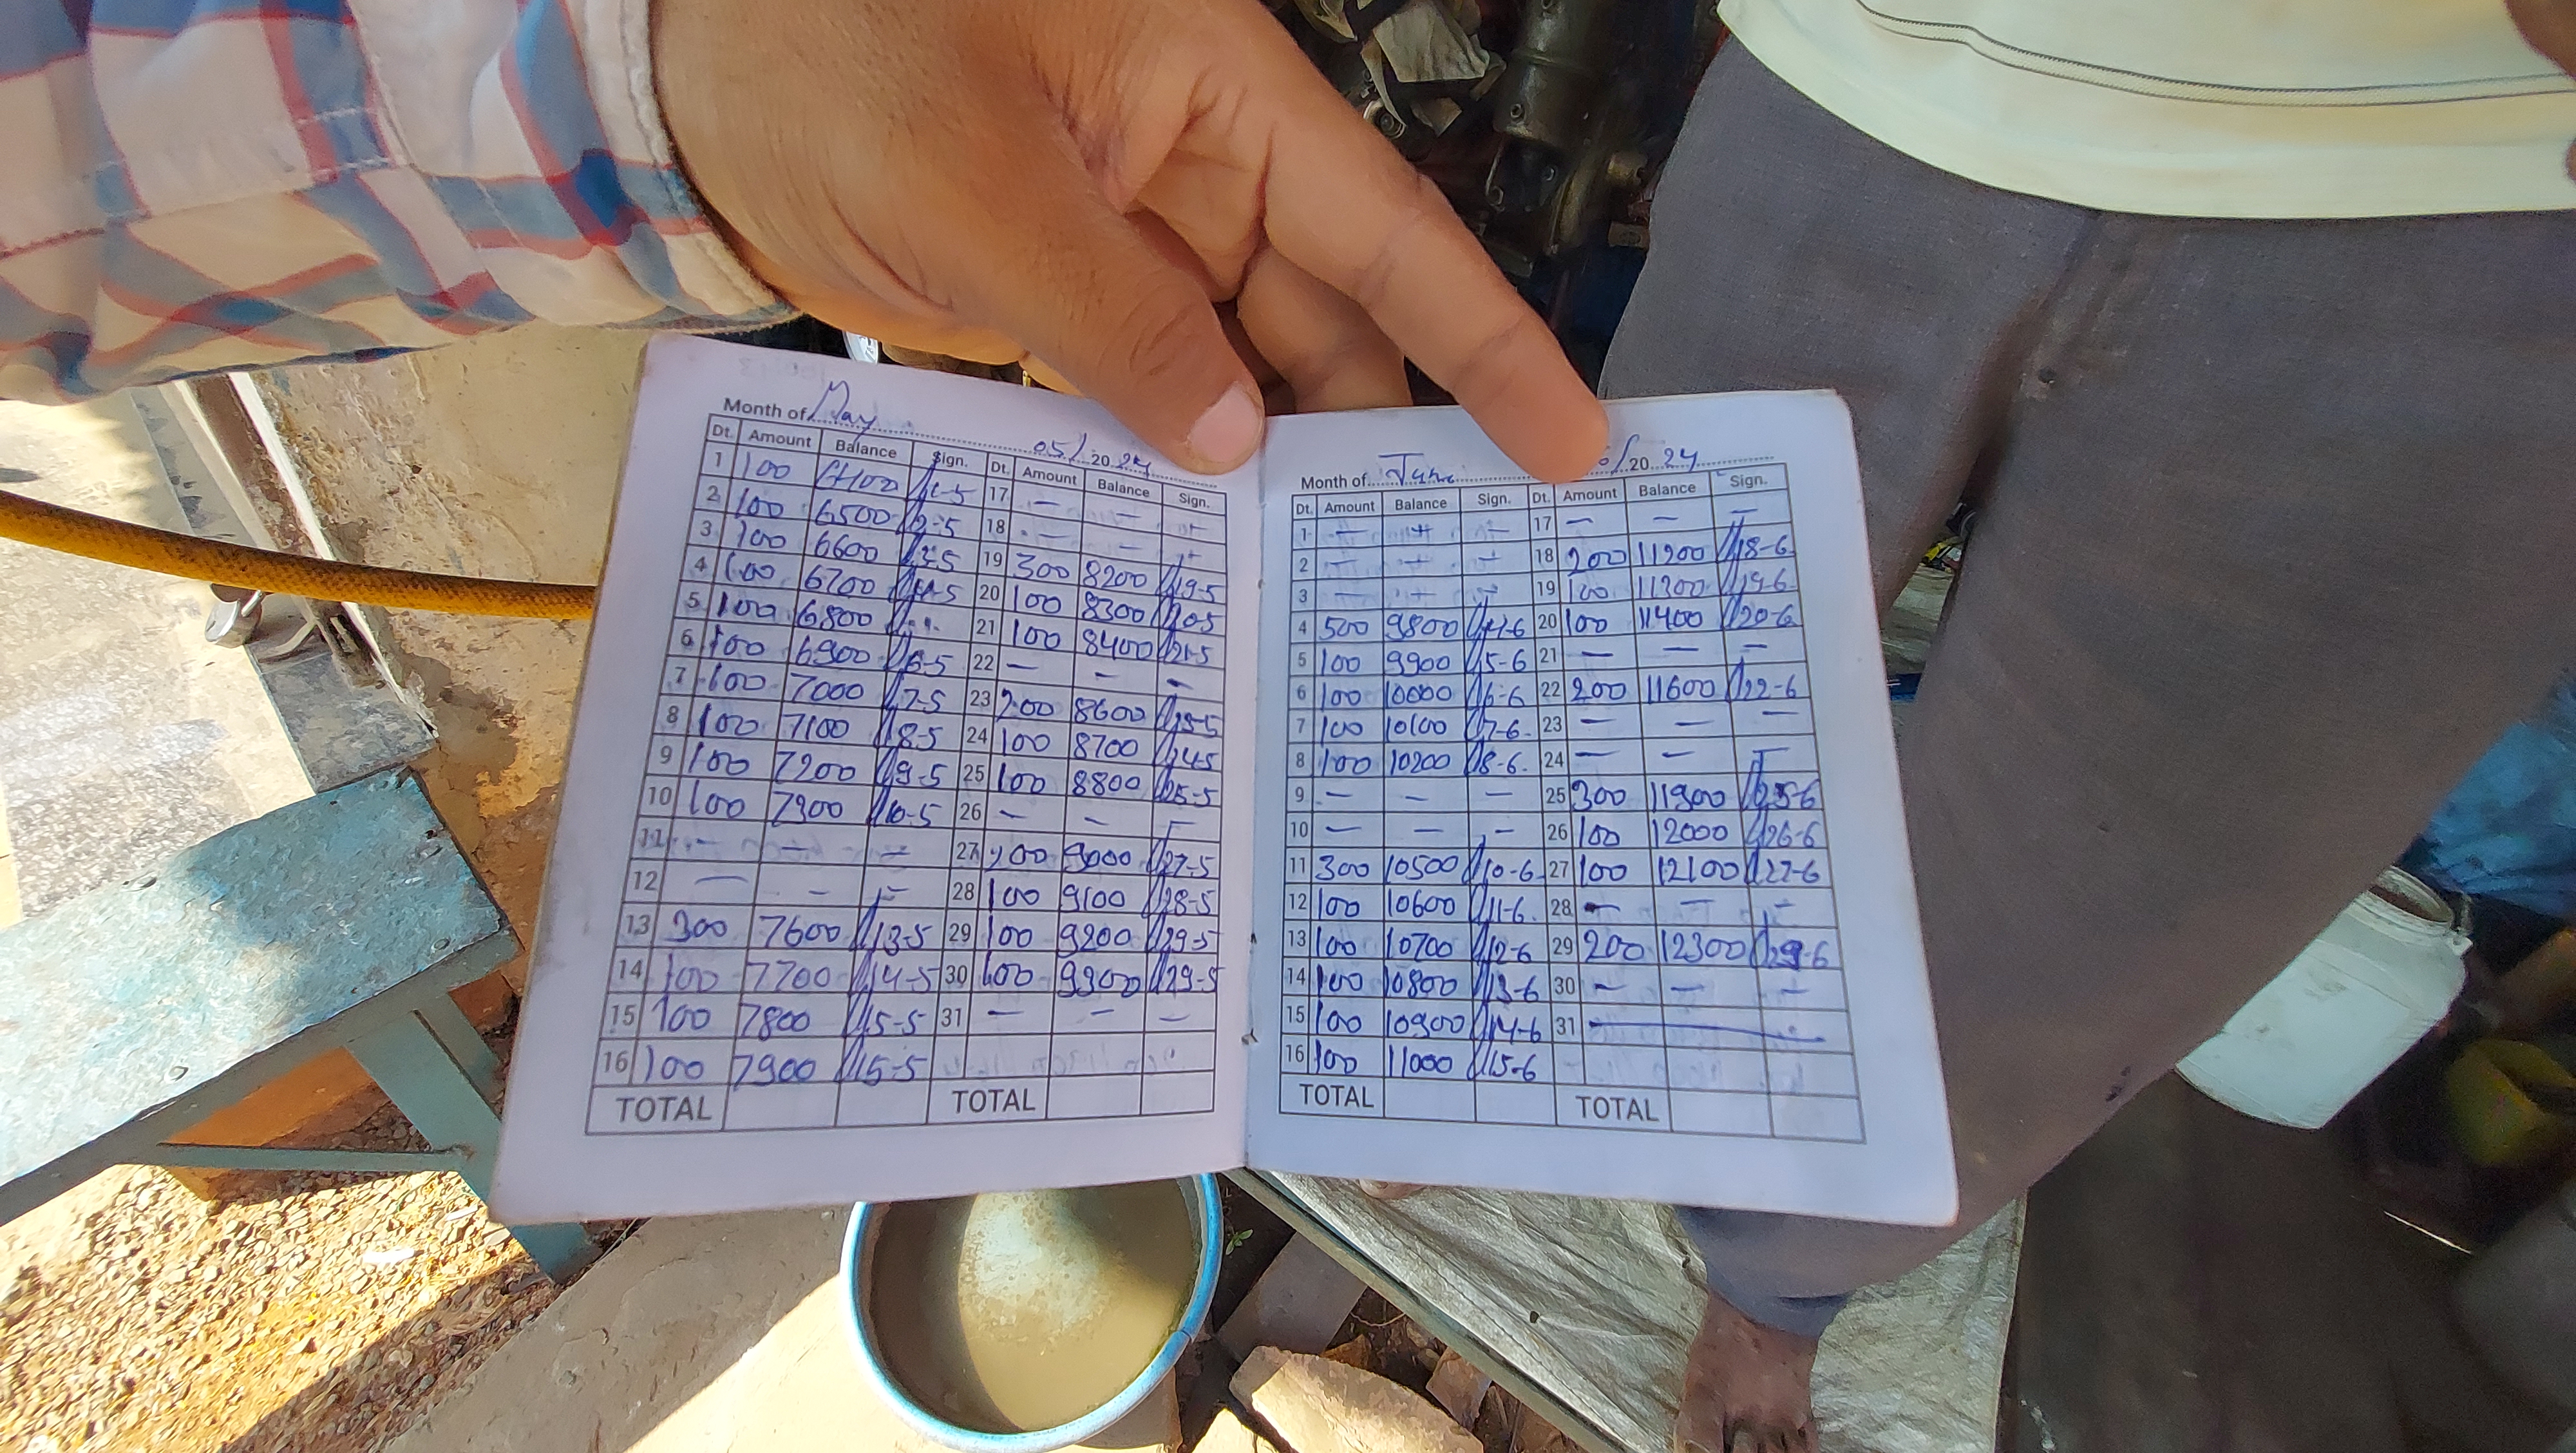 Month of May 05/2024
Dt. Amount Balance Sign. Dt. Amount Balance Sign.
1 100 6400 1-5 17 — — —
2 100 6500 2-5 18 — — —
3 100 6600 3-5 19 300 8200 19-5
4 100 6700 4-5 20 100 8300 20-5
5 100 6800 21 100 8400 21-5
6 100 6900 6-5 22 — — —
7 100 7000 7-5 23 200 8600 23-5
8 100 7100 8-5 24 100 8700 24-5
9 100 7200 9-5 25 100 8800 25-5
10 100 7300 10-5 26 — — —
11 — — — 27 200 9000 27-5
12 — — — 28 100 9100 28-5
13 300 7600 13-5 29 100 9200 29-5
14 100 7700 14-5 30 100 9300 29-5
15 100 7800 15-5 31 — — —
16 100 7900 15-5
TOTAL TOTAL
Month of June 2024
Dt. Amount Balance Sign. Dt. Amount Balance Sign.
1 — — — 17 — — —
2 — — — 18 200 11200 18-6
3 — — — 19 100 11300 19-6
4 500 9800 4-6 20 100 11400 20-6
5 100 9900 5-6 21 — — —
6 100 10000 6-6 22 200 11600 22-6
7 100 10100 7-6 23 — — —
8 100 10200 8-6 24 — — —
9 — — — 25 300 11900 25-6
10 — — — 26 100 12000 26-6
11 300 10500 10-6 27 100 12100 27-6
12 100 10600 11-6 28 — — —
13 100 10700 12-6 29 200 12300 29-6
14 100 10800 13-6 30 — — —
15 100 10900 14-6 31 —
16 100 11000 15-6
TOTAL TOTAL